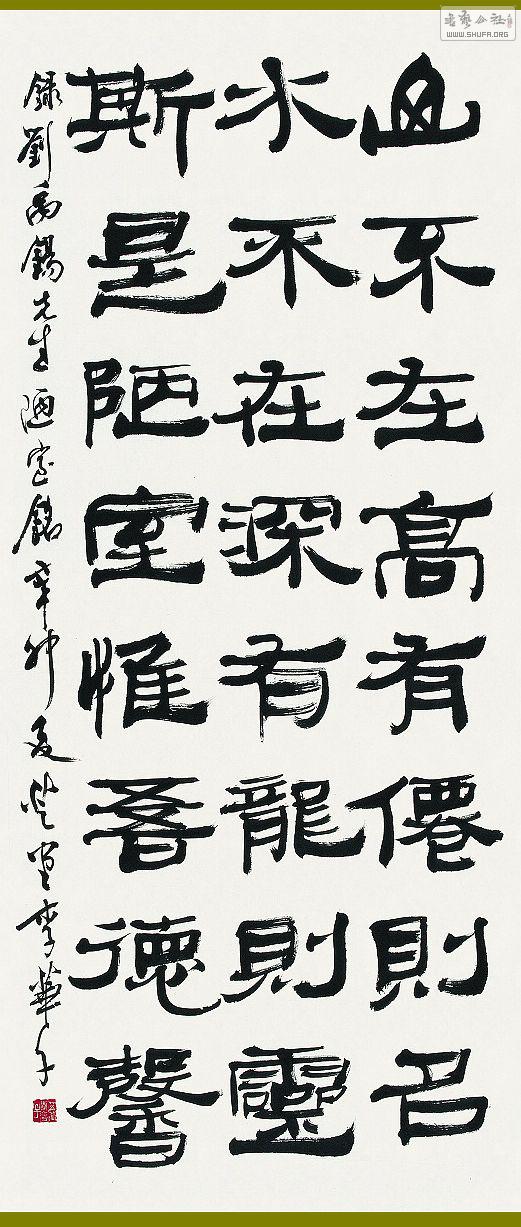 山不在高有僊則名
水不在深有龍則靈
斯是陋室惟吾德馨
錄劉禹錫先生陋室銘辛卯夏
李華
WWW.SHUFA.ORG